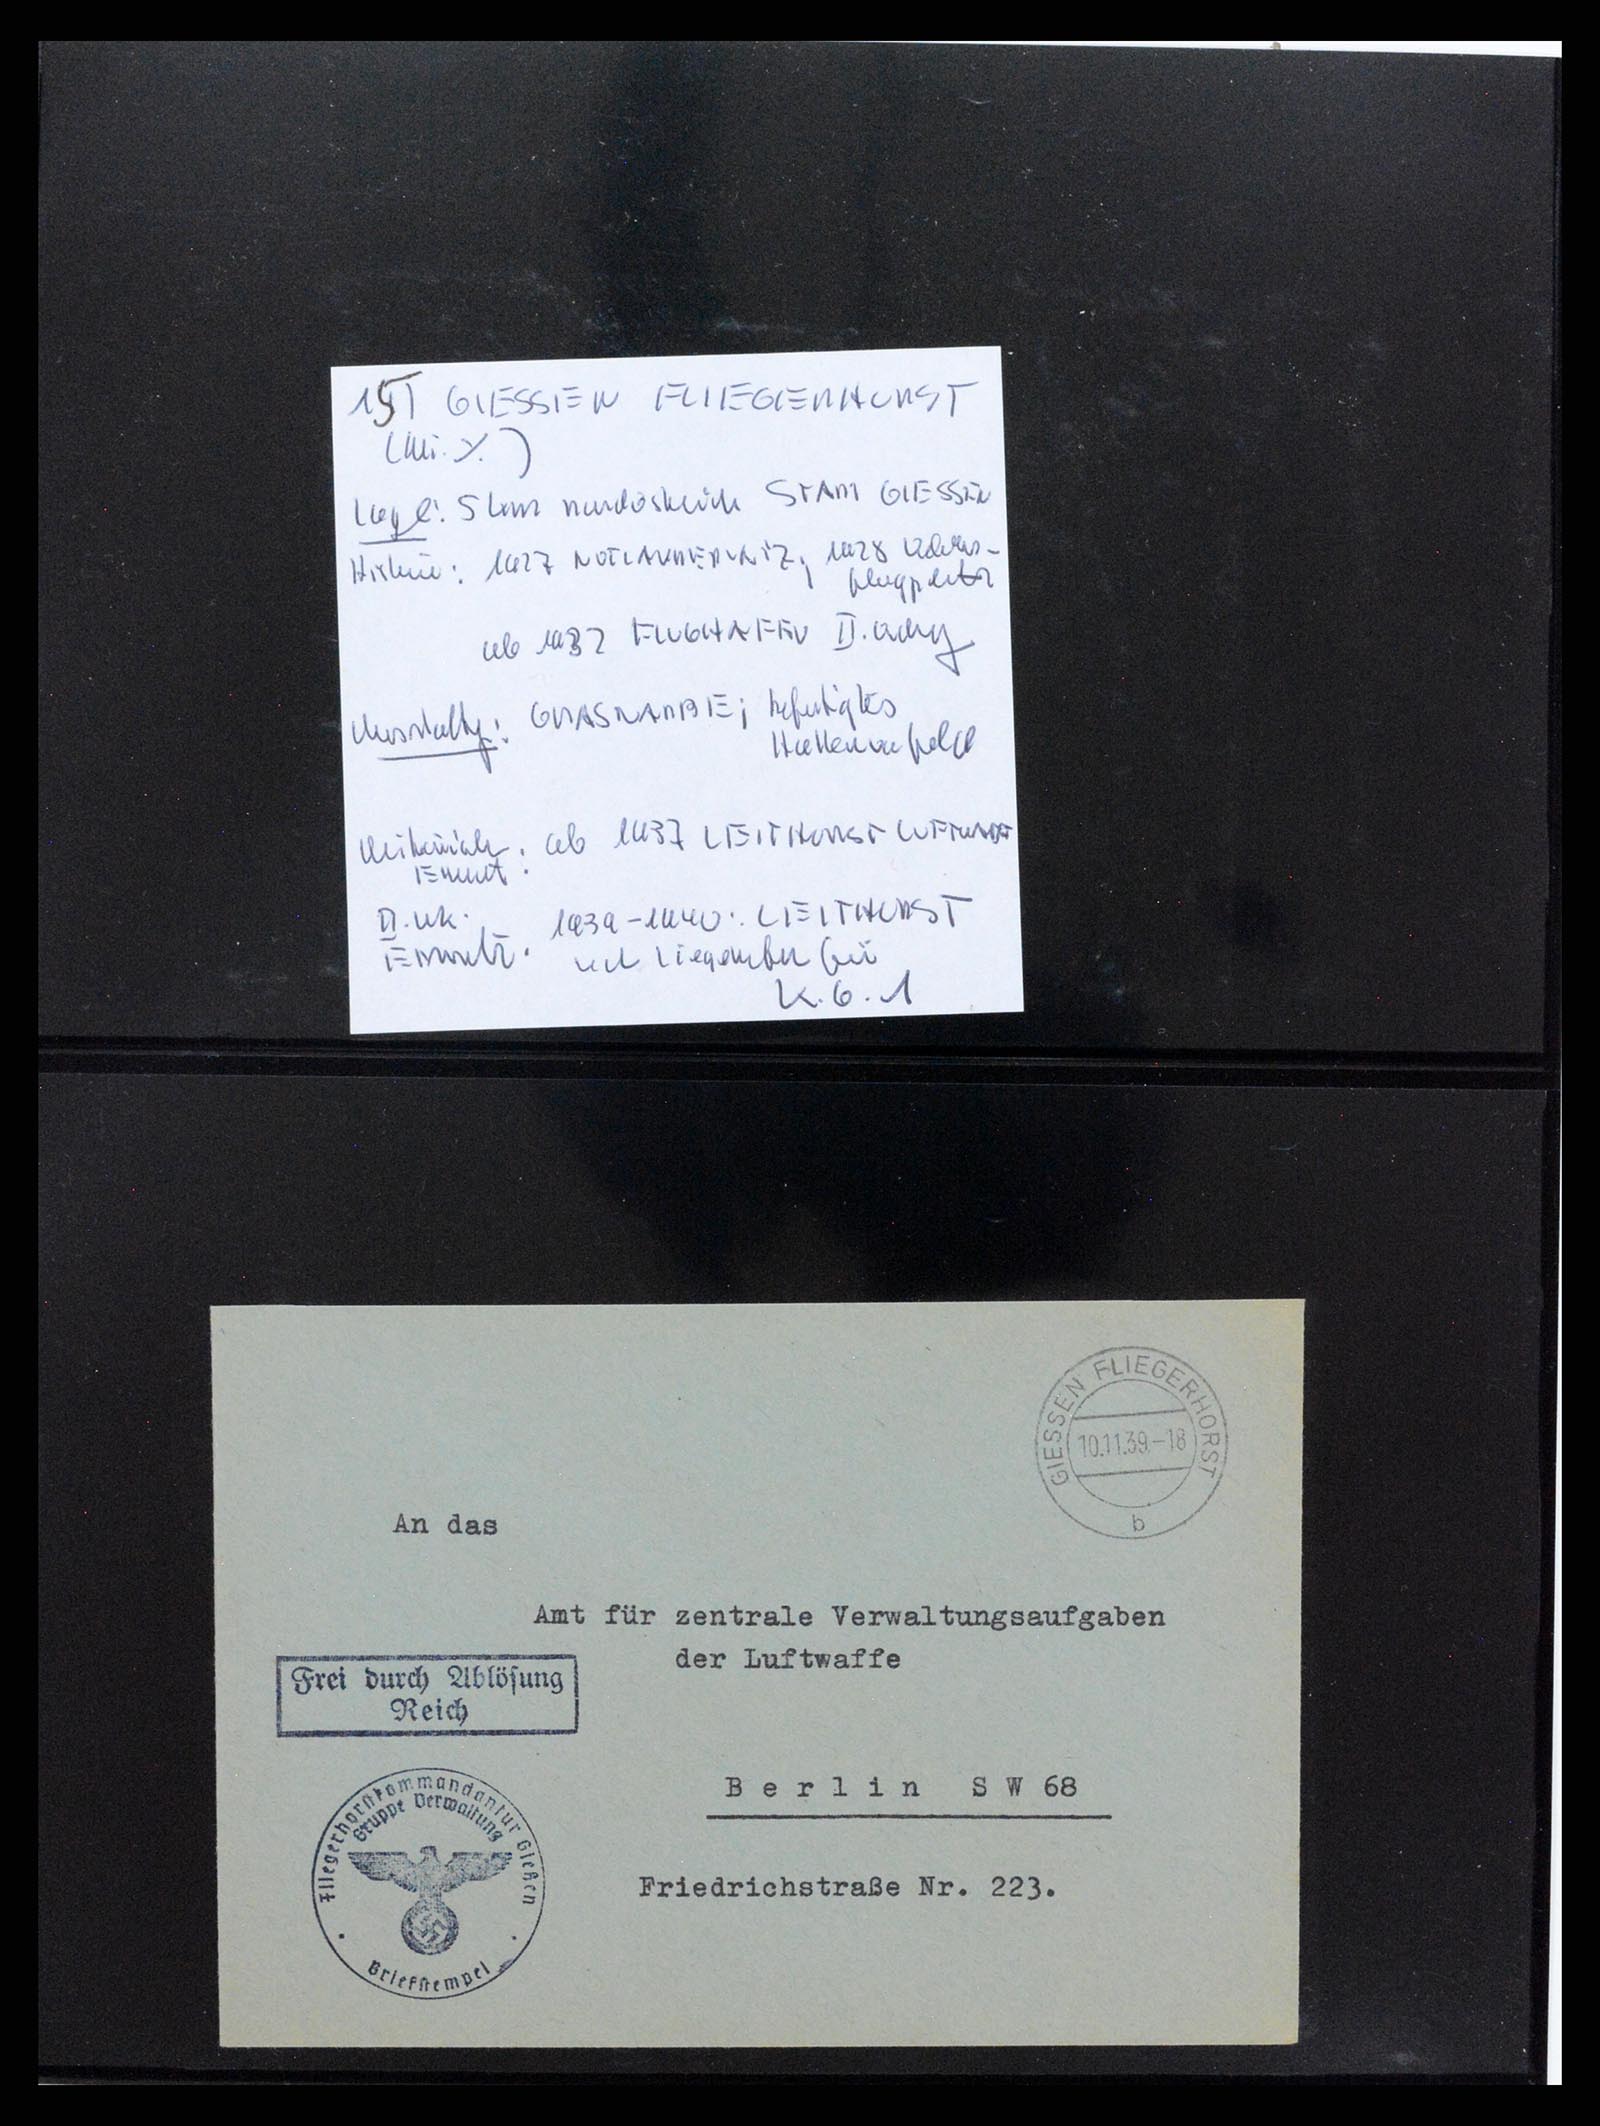 GIESSEN FLIEGERHORST
(Mi. ⁒)
Lage: 5 km nordöstlich STADT GIESSEN
Historie: 1927 NOTLANDEPLATZ, 1928
ab 1937 FLUGHAFEN II.
GRASNARBE; befestigtes
Hallenvorfeld
ab 1937 LEITHORST LUFTWAFFE
1939-1940: LEITHORST
K.G.1
GIESSEN FLIEGERHORST
10.11.39.-18
b
An das
Amt für zentrale Verwaltungsaufgaben
der Luftwaffe
Frei durch Ablösung
Reich
Berlin SW 68
Fliegerhorstkommandantur Gießen
Gruppe Verwaltung
Briefstempel
Friedrichstraße Nr. 223.